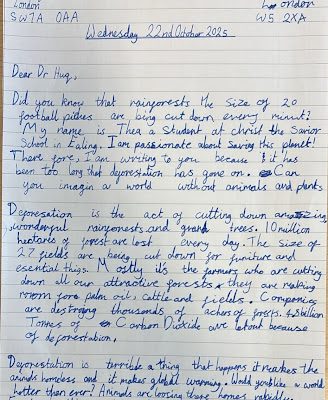 London London
SW7A 0AA W5 2XA
Wednesday 22nd October 2025
Dear Dr Huq,
Did you know that rainforests the size of 20
football pitches are bing cut down every minut?
My name is Thea a Student at christ the Savior
School in Ealing. I am passionate about Saving this planet!
There fore, I am writing to you because it has
been too long that deforestation has gone on. Can
you imagin a world without animals and plants.
Deforesation is the act of cutting down amazing,
wonderful rainforests and grand trees. 10 million
hectares of forest are lost every day. The size of
27 fields are being cut down for funiture and
esential thigs. Mostly it's the farmers who are cutting
down all our attractive forests, they are making
room for palm oil, cattle and fields. Companies
are destroying thousands of achers of forests. 4.8 billion
Tonnes of Carbon Dioxide are letout because
of deforestation.
Deforestation is terrible a thing that happens it makes the
animals homeless and it makes global warming. Would you like a world
better than ever? Animals are loosing there homes